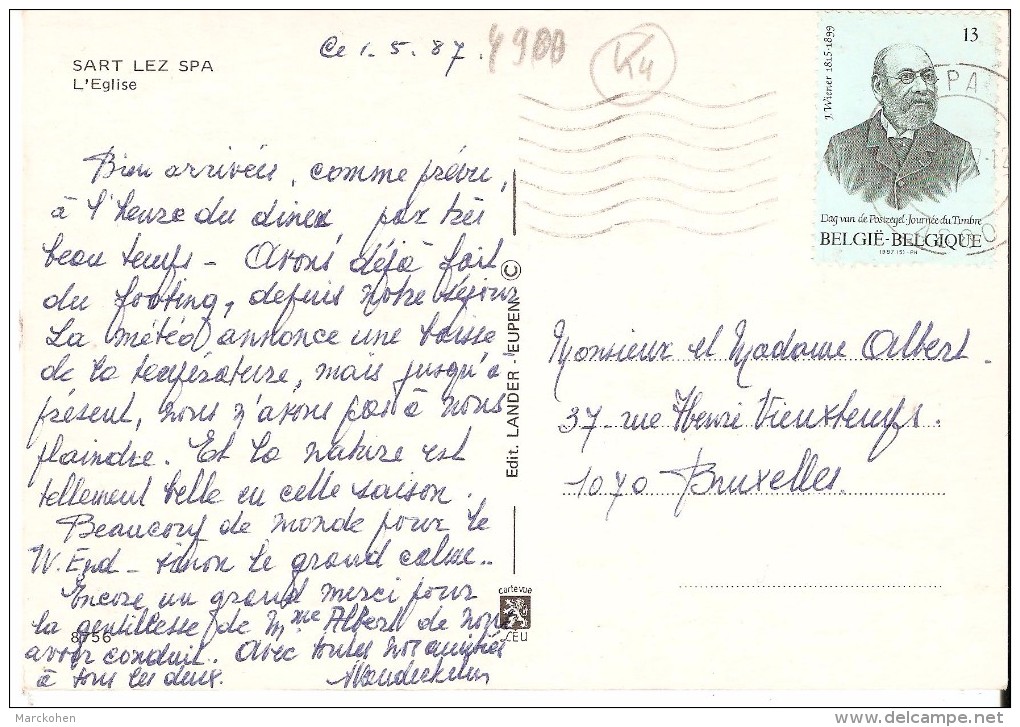 SART LEZ SPA
L'Eglise
Ce 1.5.87.
4900
K4
J. Wiener 1815-1899
13
SPA
Dag van de Postzegel-Journée du Timbre
BELGIË-BELGIQUE
1987
4900
Bien arrivées, comme prévu,
à l'heure du diner, par très
beau temps - Avons déjà fait
du footing, depuis notre séjour
La météo annonce une baisse
de la température, mais jusqu'à
présent, nous n'avons pas à nous
plaindre. Et la nature est
tellement belle en cette saison.
Beaucoup de monde pour le
W. End - sinon le grand calme..
Encore un grand merci pour
la gentillesse de Mme Albert de nous
avoir conduit. Avec toutes nos amitiés
à tous les deux.
8756
Edit. LANDER EUPEN ©
carte vue
CEU
Monsieur et Madame Albert -
37 - rue Henri Vieuxtemps.
1070 Bruxelles.
Marckohen
delcampe.net